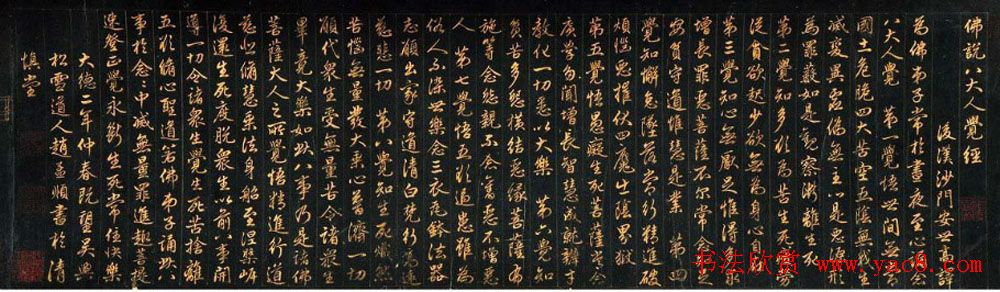 佛說八大人覺經
後漢沙門安世高譯
為佛弟子常於晝夜至心誦念
八大人覺 第一覺悟世間無常
國土危脆四大苦空五陰無我生
滅變異虛偽無主心是惡源形
為罪藪如是觀察漸離生死
第二覺知多欲為苦生死疲勞
從貪欲起少欲無為身心自在
第三覺知心無厭足惟得多求
增長罪惡菩薩不爾常念知足
安貧守道惟慧是業 第四
覺知懈怠墜落常行精進破
煩惱惡摧伏四魔出陰界獄
第五覺悟愚癡生死菩薩常念
廣學多聞增長智慧成就辯才
教化一切悉以大樂 第六覺知
貧苦多怨橫結惡緣菩薩布
施等念怨親不念舊惡不憎惡
人 第七覺悟五欲過患雖為
俗人不染世樂念三衣瓦鉢法器
志願出家守道清白梵行高遠
慈悲一切 第八覺知生死熾然
苦惱無量發大乘心普濟一切
願代衆生受無量苦令諸衆生
畢竟大樂如此八事乃是諸佛
菩薩大人之所覺悟精進行道
慈悲脩慧乘法身船至涅槃岸
復還生死度脫衆生以前八事開
導一切令諸衆生覺生死苦捨離
五欲脩心聖道若佛弟子誦此八
事於念念中滅無量罪進趣菩提
速登正覺永斷生死常住快樂
大德二年仲春既望吳興
松雪道人趙孟頫書於清
慎堂
书法欣赏 www.yac8.com